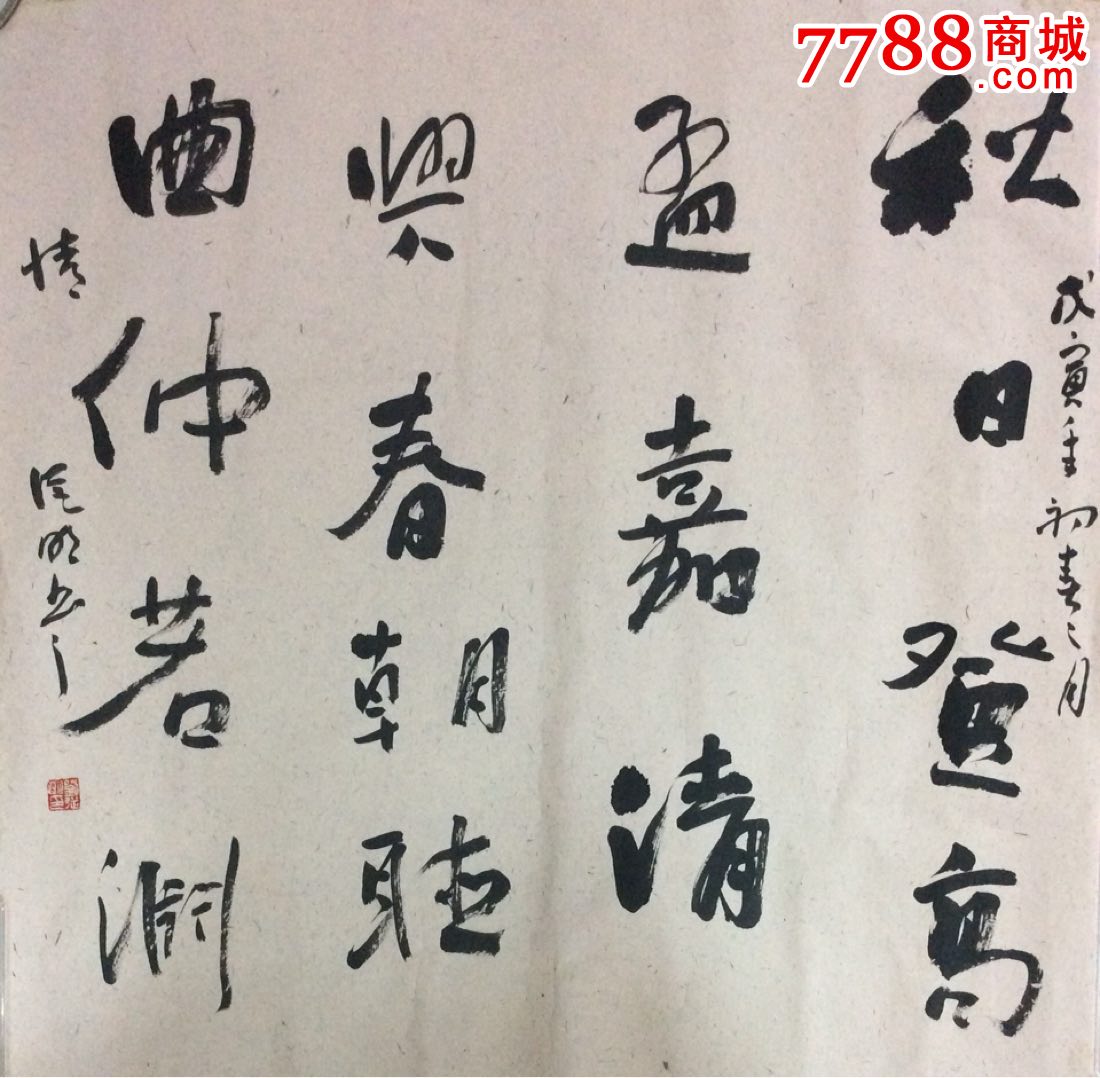 7788商城
.com
秋日登高
孟嘉清
興春朝聽
曲仲若澗
情
戊寅年初春二月
明书